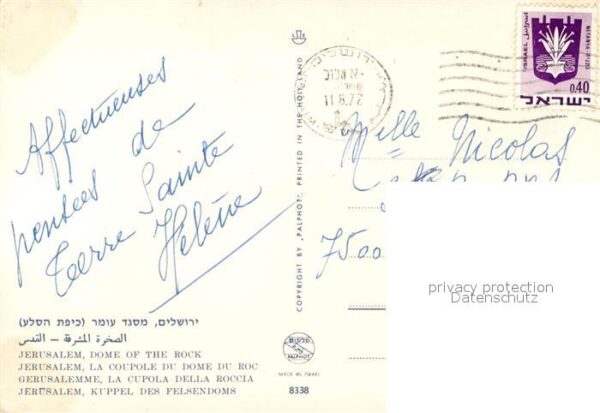 Affectueuses
pensées de
Terre Sainte
Hélène
ירושלים, מסגד עומר (כיפת הסלע)
الصخرة المشرفة — القدس
JERUSALEM, DOME OF THE ROCK
JERUSALEM, LA COUPOLE DU DOME DU ROC
GERUSALEMME, LA CUPOLA DELLA ROCCIA
JERUSALEM, KUPPEL DES FELSENDOMS
COPYRIGHT BY "PALPHOT" PRINTED IN THE HOLY LAND
פלפוט
PALPHOT
MADE IN ISRAEL
8338
11.8.72
NETANYA נתניה
ISRAEL اسرائيل
0.40
ישראל
Melle Nicolas
7500
privacy protection
Datenschutz